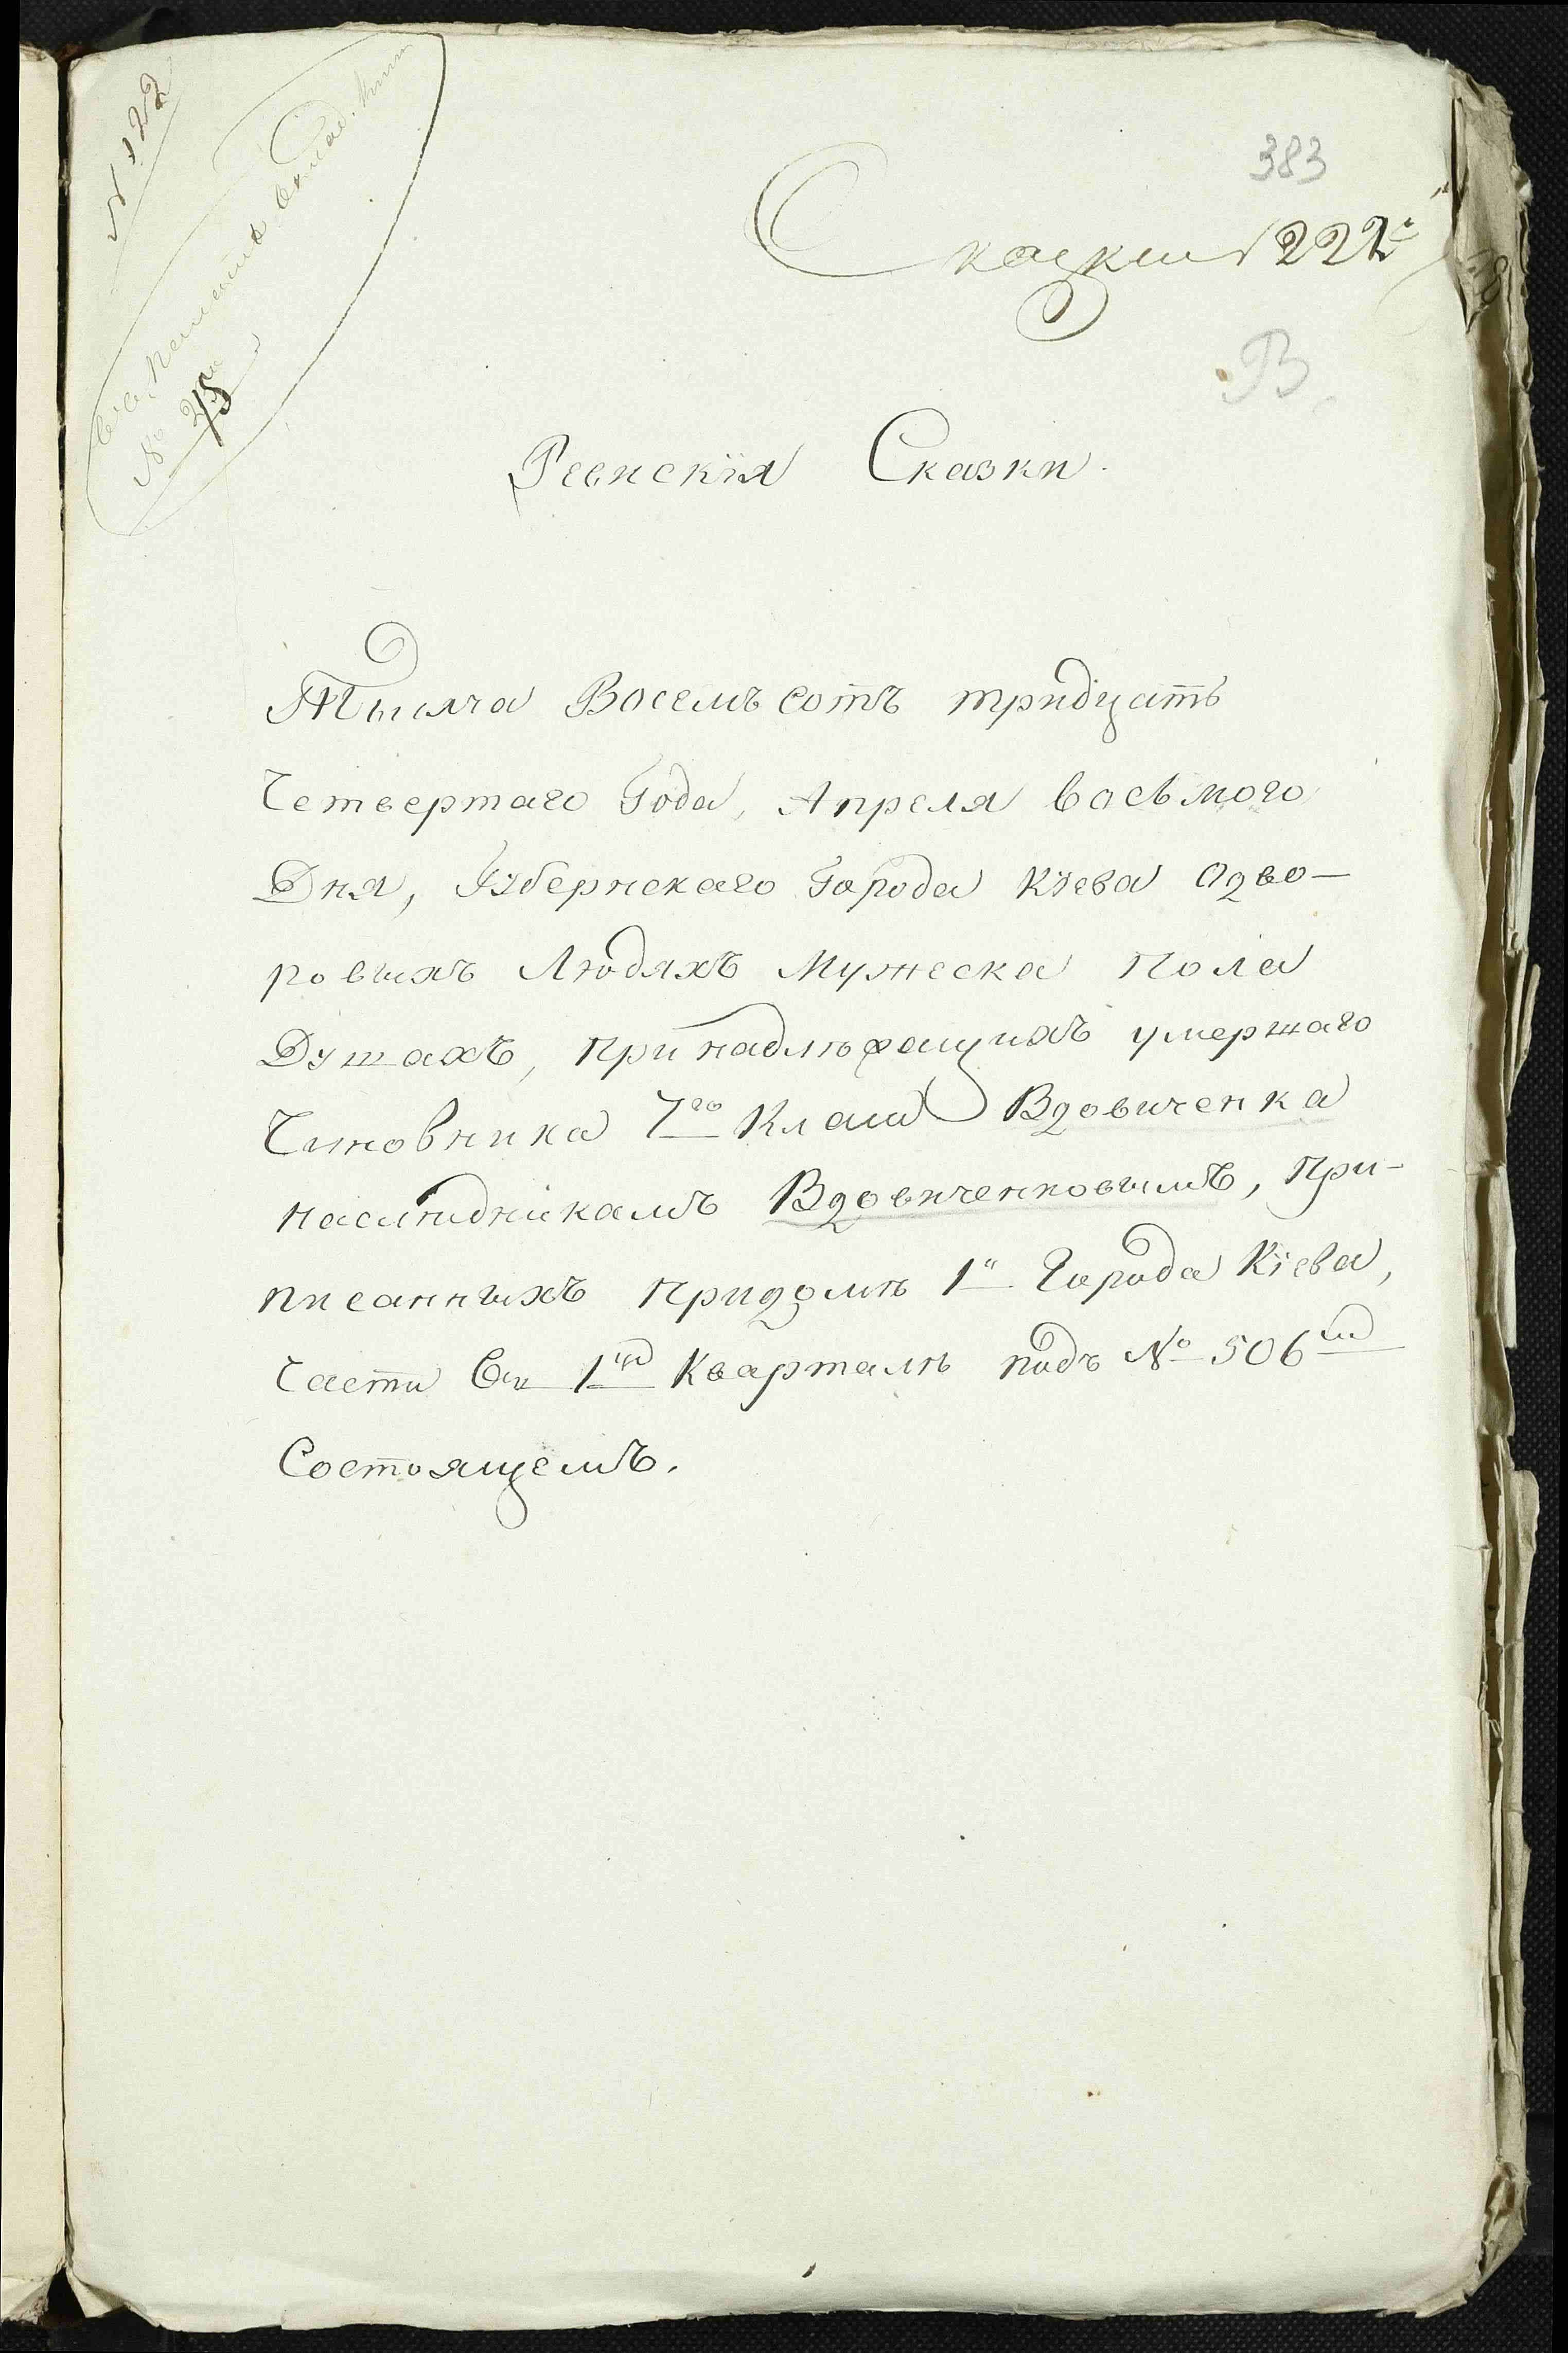 № 122
№ 215
383
Сказки 222я
В
Ревскія Сказки.
Тысяча Восемъ сотъ тридцать
Четвертаго Года, Апреля восьмого
Дня, Губернскаго Города Кіева одво-
ровыхъ Людяхъ Мужеска Пола
Душахъ, принадлѣжащихъ умершаго
Чиновника 7го Класа Вдовиченка
наслѣдникамъ Вдовиченковымъ, При-
писанныхъ Придомѣ 1й Города Кіева,
Части въ 1мъ Кварталѣ подъ № 506мъ
Состоящемъ.